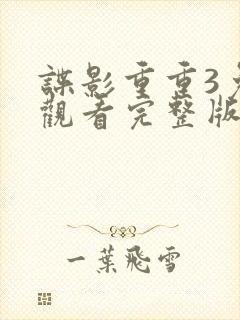 諜影重重3
觀看完整版
一葉飛雪